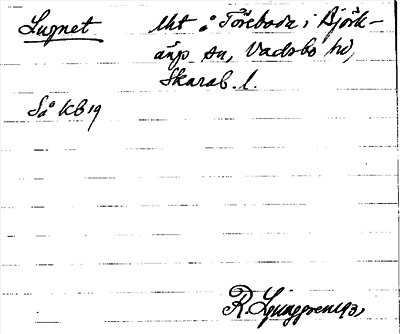 Lugnet lht å Töreboda i Björk-
äng sn, Vadsbo hd,
Skarab. l.
Så KB 19
R. Ljunggren 193